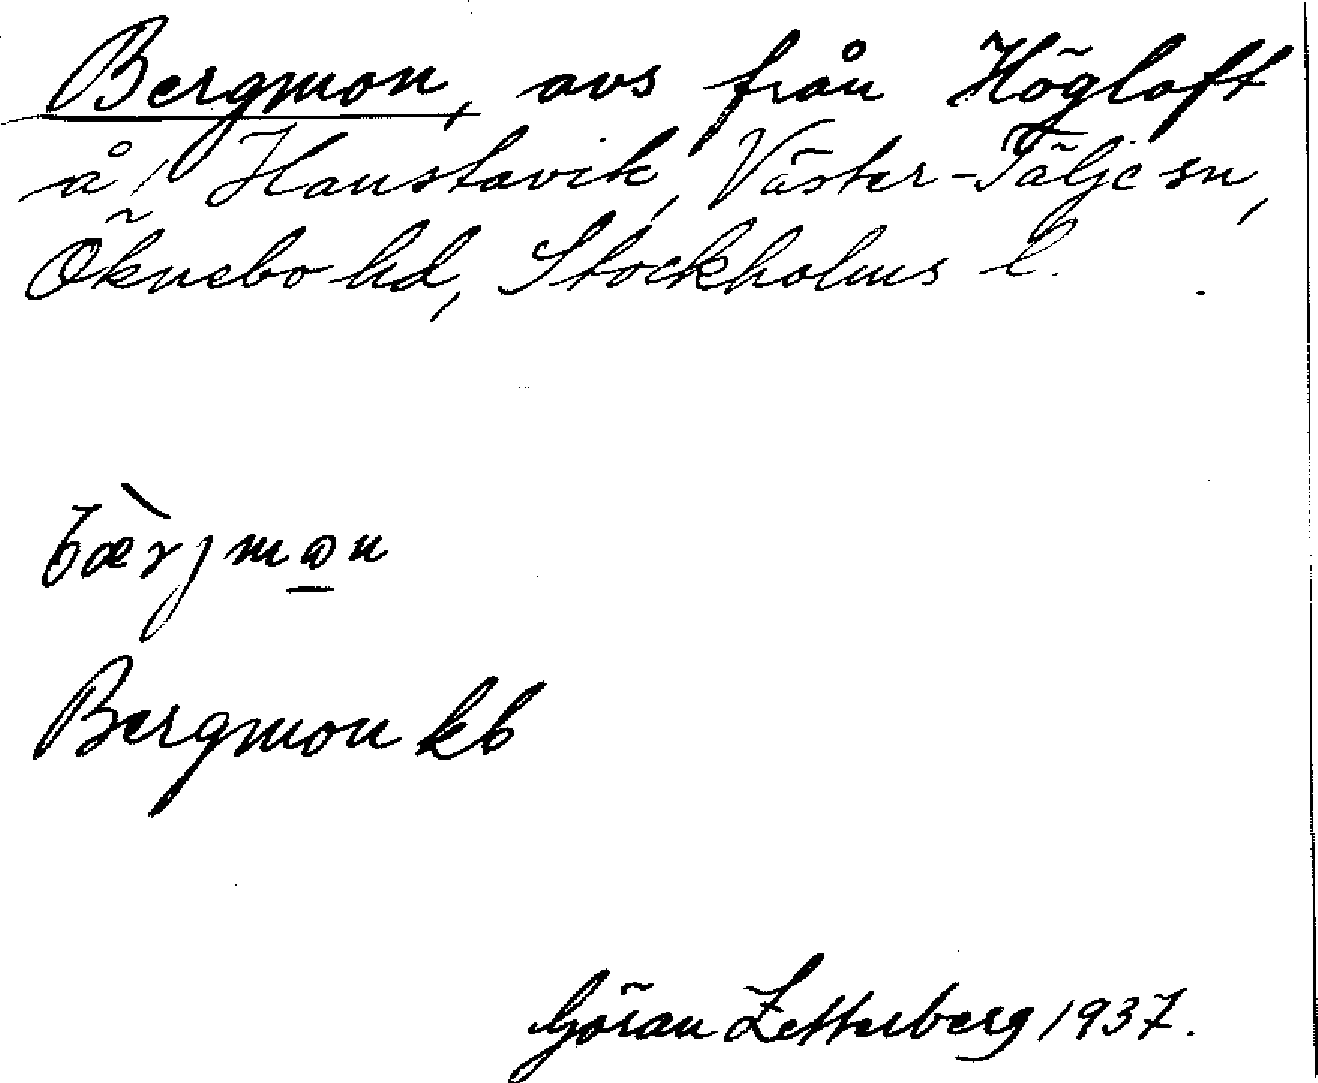 Bergmon, avs från Högloft
å Haustavik, Väster-Tälje sn,
Öknebo hd, Stockholms l.
bæ̀rjmωn
Bergmon kb
Göran Zetterberg 1937.